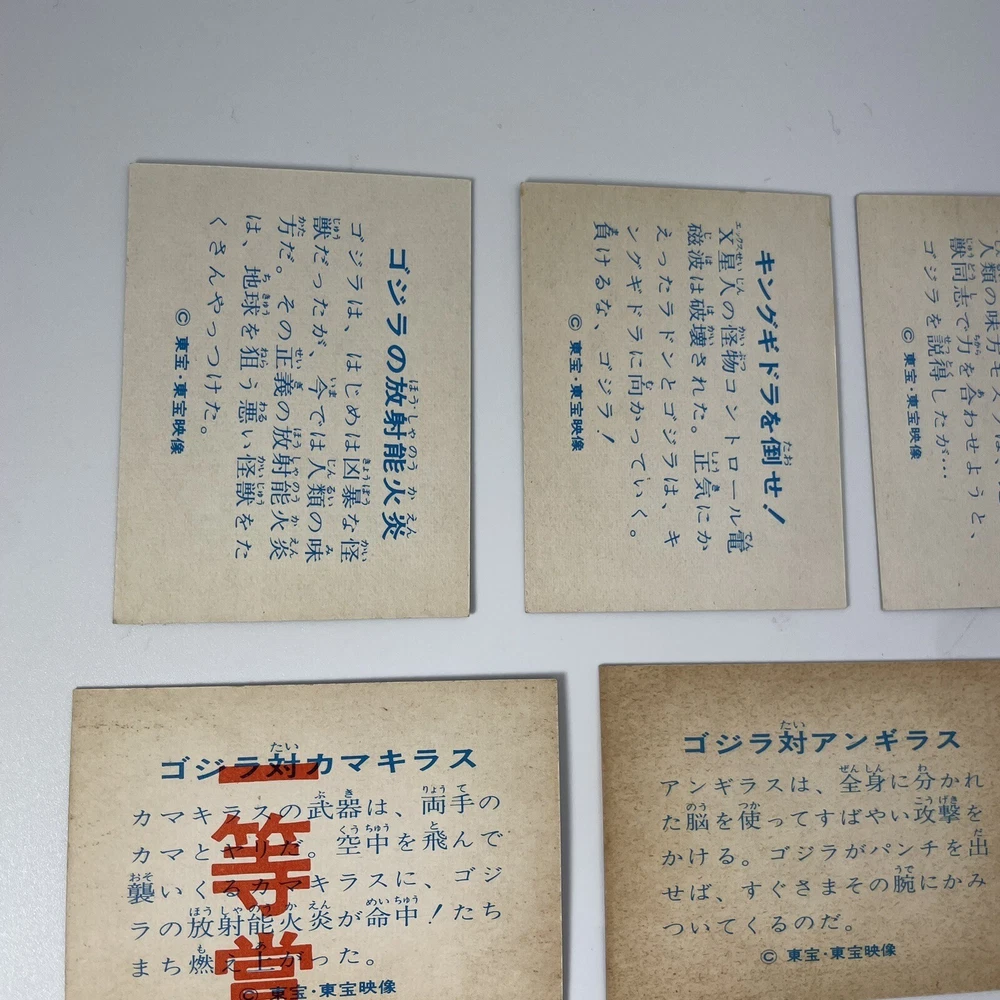 ゴジラの放射能火炎
ゴジラは、はじめは凶暴な怪
獣だったが、今では人類の味
方だ。その正義の放射能火炎
は、地球を狙う悪い怪獣をた
くさんやっつけた。
©東宝・東宝映像
キングギドラを倒せ！
X星人の怪物コントロール電
磁波は破壊された。正気にか
えったラドンとゴジラは、キ
ングギドラに向かっていく。
負けるな、ゴジラ！
©東宝・東宝映像
人類の味方モスラは、
獣同志で力を合わせようと、
ゴジラを説得したが…
©東宝・東宝映像
ゴジラ対カマキラス
カマキラスの武器は、両手の
カマとヤリだ。空中を飛んで
襲いくるカマキラスに、ゴジ
ラの放射能火炎が命中！たち
まち燃え上がった。
©東宝・東宝映像
一等賞
ゴジラ対アンギラス
アンギラスは、全身に分かれ
た脳を使ってすばやい攻撃を
かける。ゴジラがパンチを出
せば、すぐさまその腕にかみ
ついてくるのだ。
©東宝・東宝映像